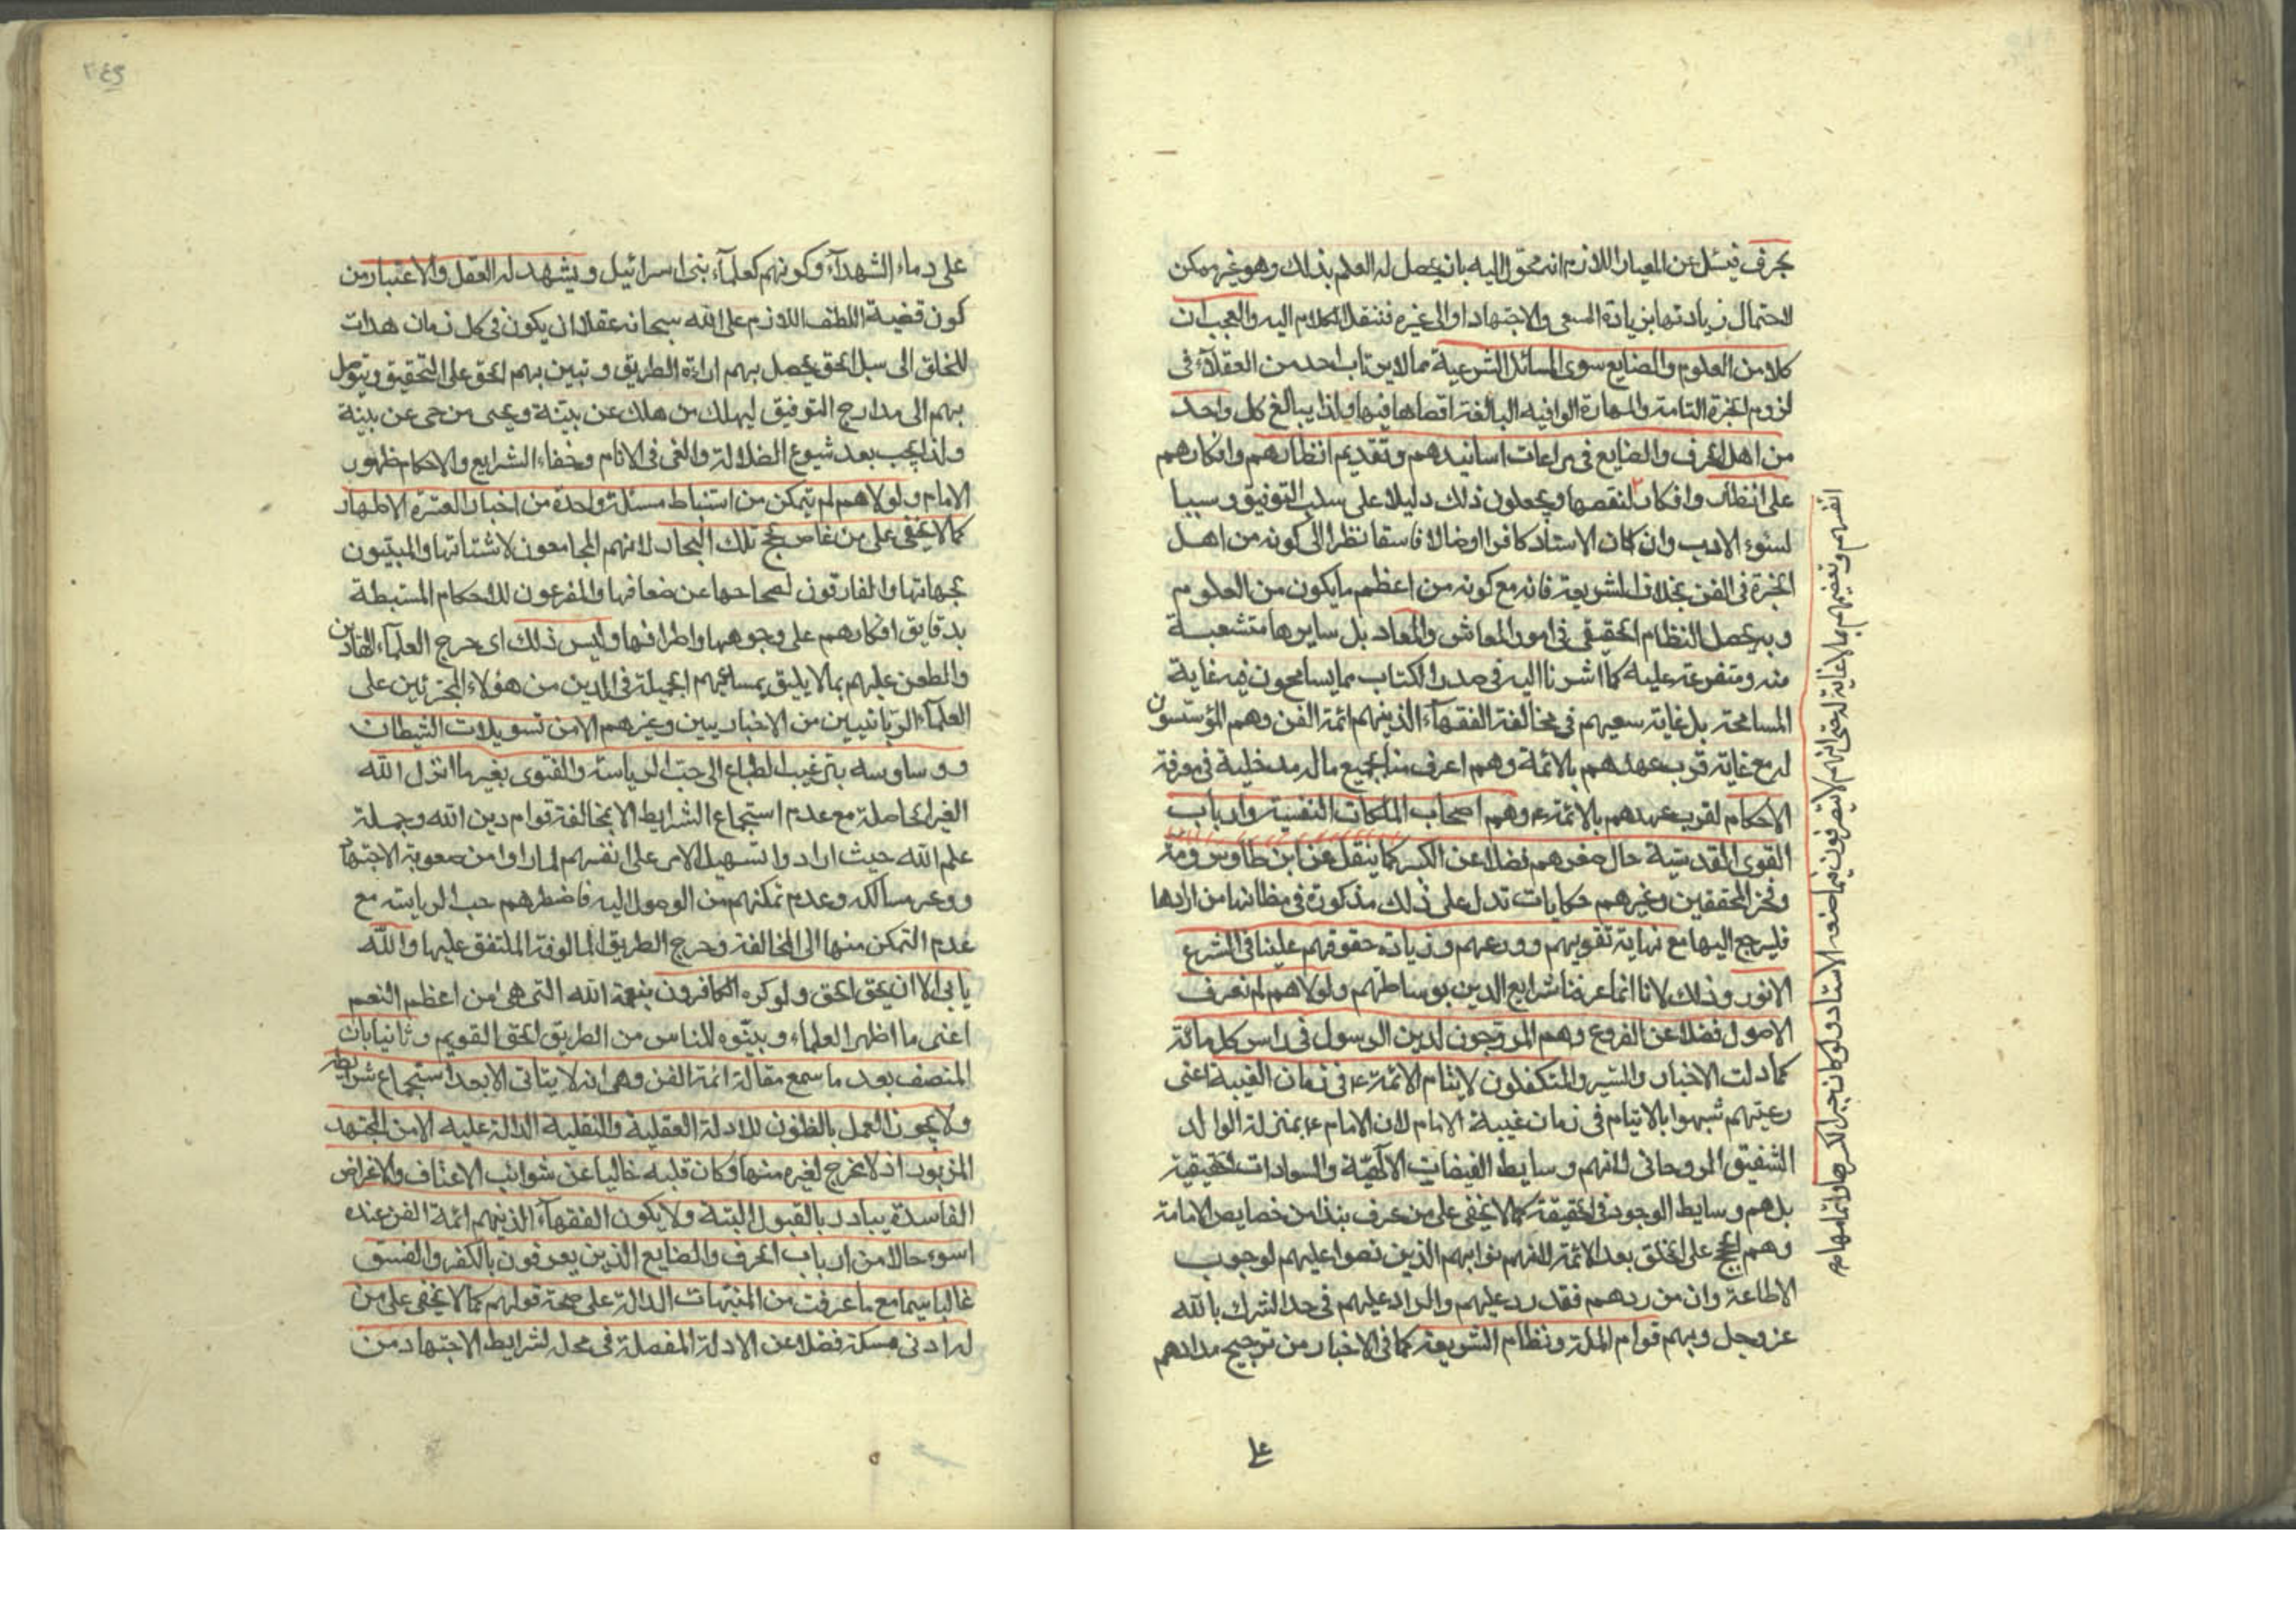 بحرف فيسئل عن المعيار اللازم انه محول اليه بان يحصل له العلم بذلك وهو غير ممكن
لاحتمال زيادتها بزيادة السعى والاجتهاد او الى غيره فننقل الكلام اليه والعجب ان
كلا من العلوم والصنايع سوى المسائل الشرعية مما لا يرتاب احد من العقلاء فى
لزوم الخبرة التامة والمهارة الوافيه البالغة اقصاها فيها ولذا يبالغ كل واحد
من اهل الحرف والصنايع فى مراعات اسانيدهم وتقديم انظارهم وافكارهم
على انظار وافكار لنقصها ويجعلون ذلك دليلا على سلب التوفيق وسببا
لسوء الادب وان كان الاستاد كافرا او ضالا فاسقا نظرا الى كونه من اهل
الخبرة فى الفن بخلاف الشريعة فانه مع كونه من اعظم ما يكون من العلوم
وبه يحصل النظام الحقيقى فى امور المعاش والمعاد بل سايرها متشعبة
منه ومتفرعة عليه كما اشرنا اليه فى صدر الكتاب مما يسامحون فيه غاية
المسامحة بل غاية سعيهم فى مخالفة الفقهاء الذينهم ائمة الفن وهم المؤسسون
له مع غاية قرب عهدهم بالائمة وهم اعرف منا بجميع ما له مدخلية فى معرفة
الاحكام لقرب عهدهم بالائمة ع وهم اصحاب الملكات النفسية وارباب
القوى القدسية حال صغرهم فضلا عن الكبر كما ينقل عن ابن طاوس ومة
وفخر المحققين وغيرهم حكايات تدل على ذلك مذكورة فى مظانها من ارادها
فليرجع اليها مع نهاية تقويهم وورعهم وزيادة حقوقهم علينا فى الشرع
الانور وذلك لانا انما عرفنا شرايع الدين بوساطتهم ولولاهم لم نعرف
الاصول فضلا عن الفروع وهم المروجون لدين الرسول فى راس كل مائة
كما دلت الاخبار والسير والمتكفلون لايتام الائمة ع فى زمان الغيبة اعنى
رعيتهم شبهوا بالايتام فى زمان غيبة الامام لان الامام ع بمنزلة الوالد
الشفيق الروحانى لانهم وسايط الفيضات الالهية والسعادات الحقيقية
بل هم وسايط الوجود فى الحقيقة كما لا يخفى على من عرف بنذ من خصايص الامامة
وهم الحجج على الخلق بعد الائمة لانهم نوابهم الذين نصوا عليهم لوجوب
الاطاعة وان من ردهم فقد رد عليهم والراد عليهم فى حد الشرك بالله
عز وجل وبهم قوام الملة ونظام الشريعة كما فى الاخبار من ترجيح مدادهم
انفسهم وتعضيهم بما لا غاية له حتى انهم لا يتصرفون فيما صنعه الاستاد ولو كان
على
٢٤٩
على دماء الشهداء وكونهم كعلماء بنى اسرائيل ويشهد له العقل والاعتبار من
كون قضية اللطف اللازم على الله سبحانه عقلا ان يكون فى كل زمان هداة
للخلق الى سبل الحق يحصل بهم اراءة الطريق وتبين بهم الحق على التحقيق ويتوصل
بهم الى مدارج التوفيق ليهلك من هلك عن بينة ويحيى من حى عن بينة
ولذا يجب بعد شيوع الضلالة والغى فى الانام وخفاء الشرايع والاحكام ظهور
الامام ولولاهم لم يتمكن من استنباط مسئلة واحدة من اخبار العترة الاطهار
كما لا يخفى على من غاص لجج تلك البحار لانهم الجامعون لاشتاتها والمبينون
بجهاتها والفارقون لصحاحها عن ضعافها والمفرعون للاحكام المستنبطة
بدقايق افكارهم على وجوهها واطرافها وليس ذلك اى حرج العلماء القادين
والطعن عليهم بما لا يليق بمساعيهم الجميلة فى الدين من هؤلاء المجترئين على
العلماء الربانيين من الاخباريين وغيرهم الا من تسويلات الشيطان
ووساوسه بترغيب الطباع الى حب الرياسة والفتوى بغير ما انزل الله
الغير الحاصلة مع عدم استجماع الشرايط الا بمخالفة قوام دين الله وجملة
علم الله حيث ارادوا تسهيل الامر على انفسهم لما راوا من صعوبة الاجتهاد
ووعر مسالكه وعدم تمكنهم من الوصول اليه فاضطرهم حب الرياسة مع
عدم التمكن منها الى المخالفة وحرج الطريق المالوفة المتفق عليها والله
يابى الا ان يحق الحق ولو كره الكافرون بنعمة الله التى هى من اعظم النعم
اعنى ما اظهر العلماء وبينوه للناس من الطريق الحق القويم وثانيا بان
المنصف بعد ما سمع مقالة ائمة الفن وهى انه لا يتاتى الا بعد استجماع شرايط
ولا يجوز العمل بالظنون للادلة العقلية والنقلية الدالة عليه الا من المجتهد
المزبور اذ لا مخرج لغيره منها وكان قلبه خاليا عن شوائب الاعتاف والاغراض
الفاسدة يبادر بالقبول البتة ولا يكون الفقهاء الذينهم ائمة الفن عنده
اسوء حالا من ارباب الحرف والصنايع الذين يعرفون بالكفر والفسق
غالبا سيما مع ما عرفت من المنبهات الدالة على صحة قولهم كما لا يخفى على من
له ادنى مسكة فضلا عن الادلة المفصلة فى محله لشرايط الاجتهاد من